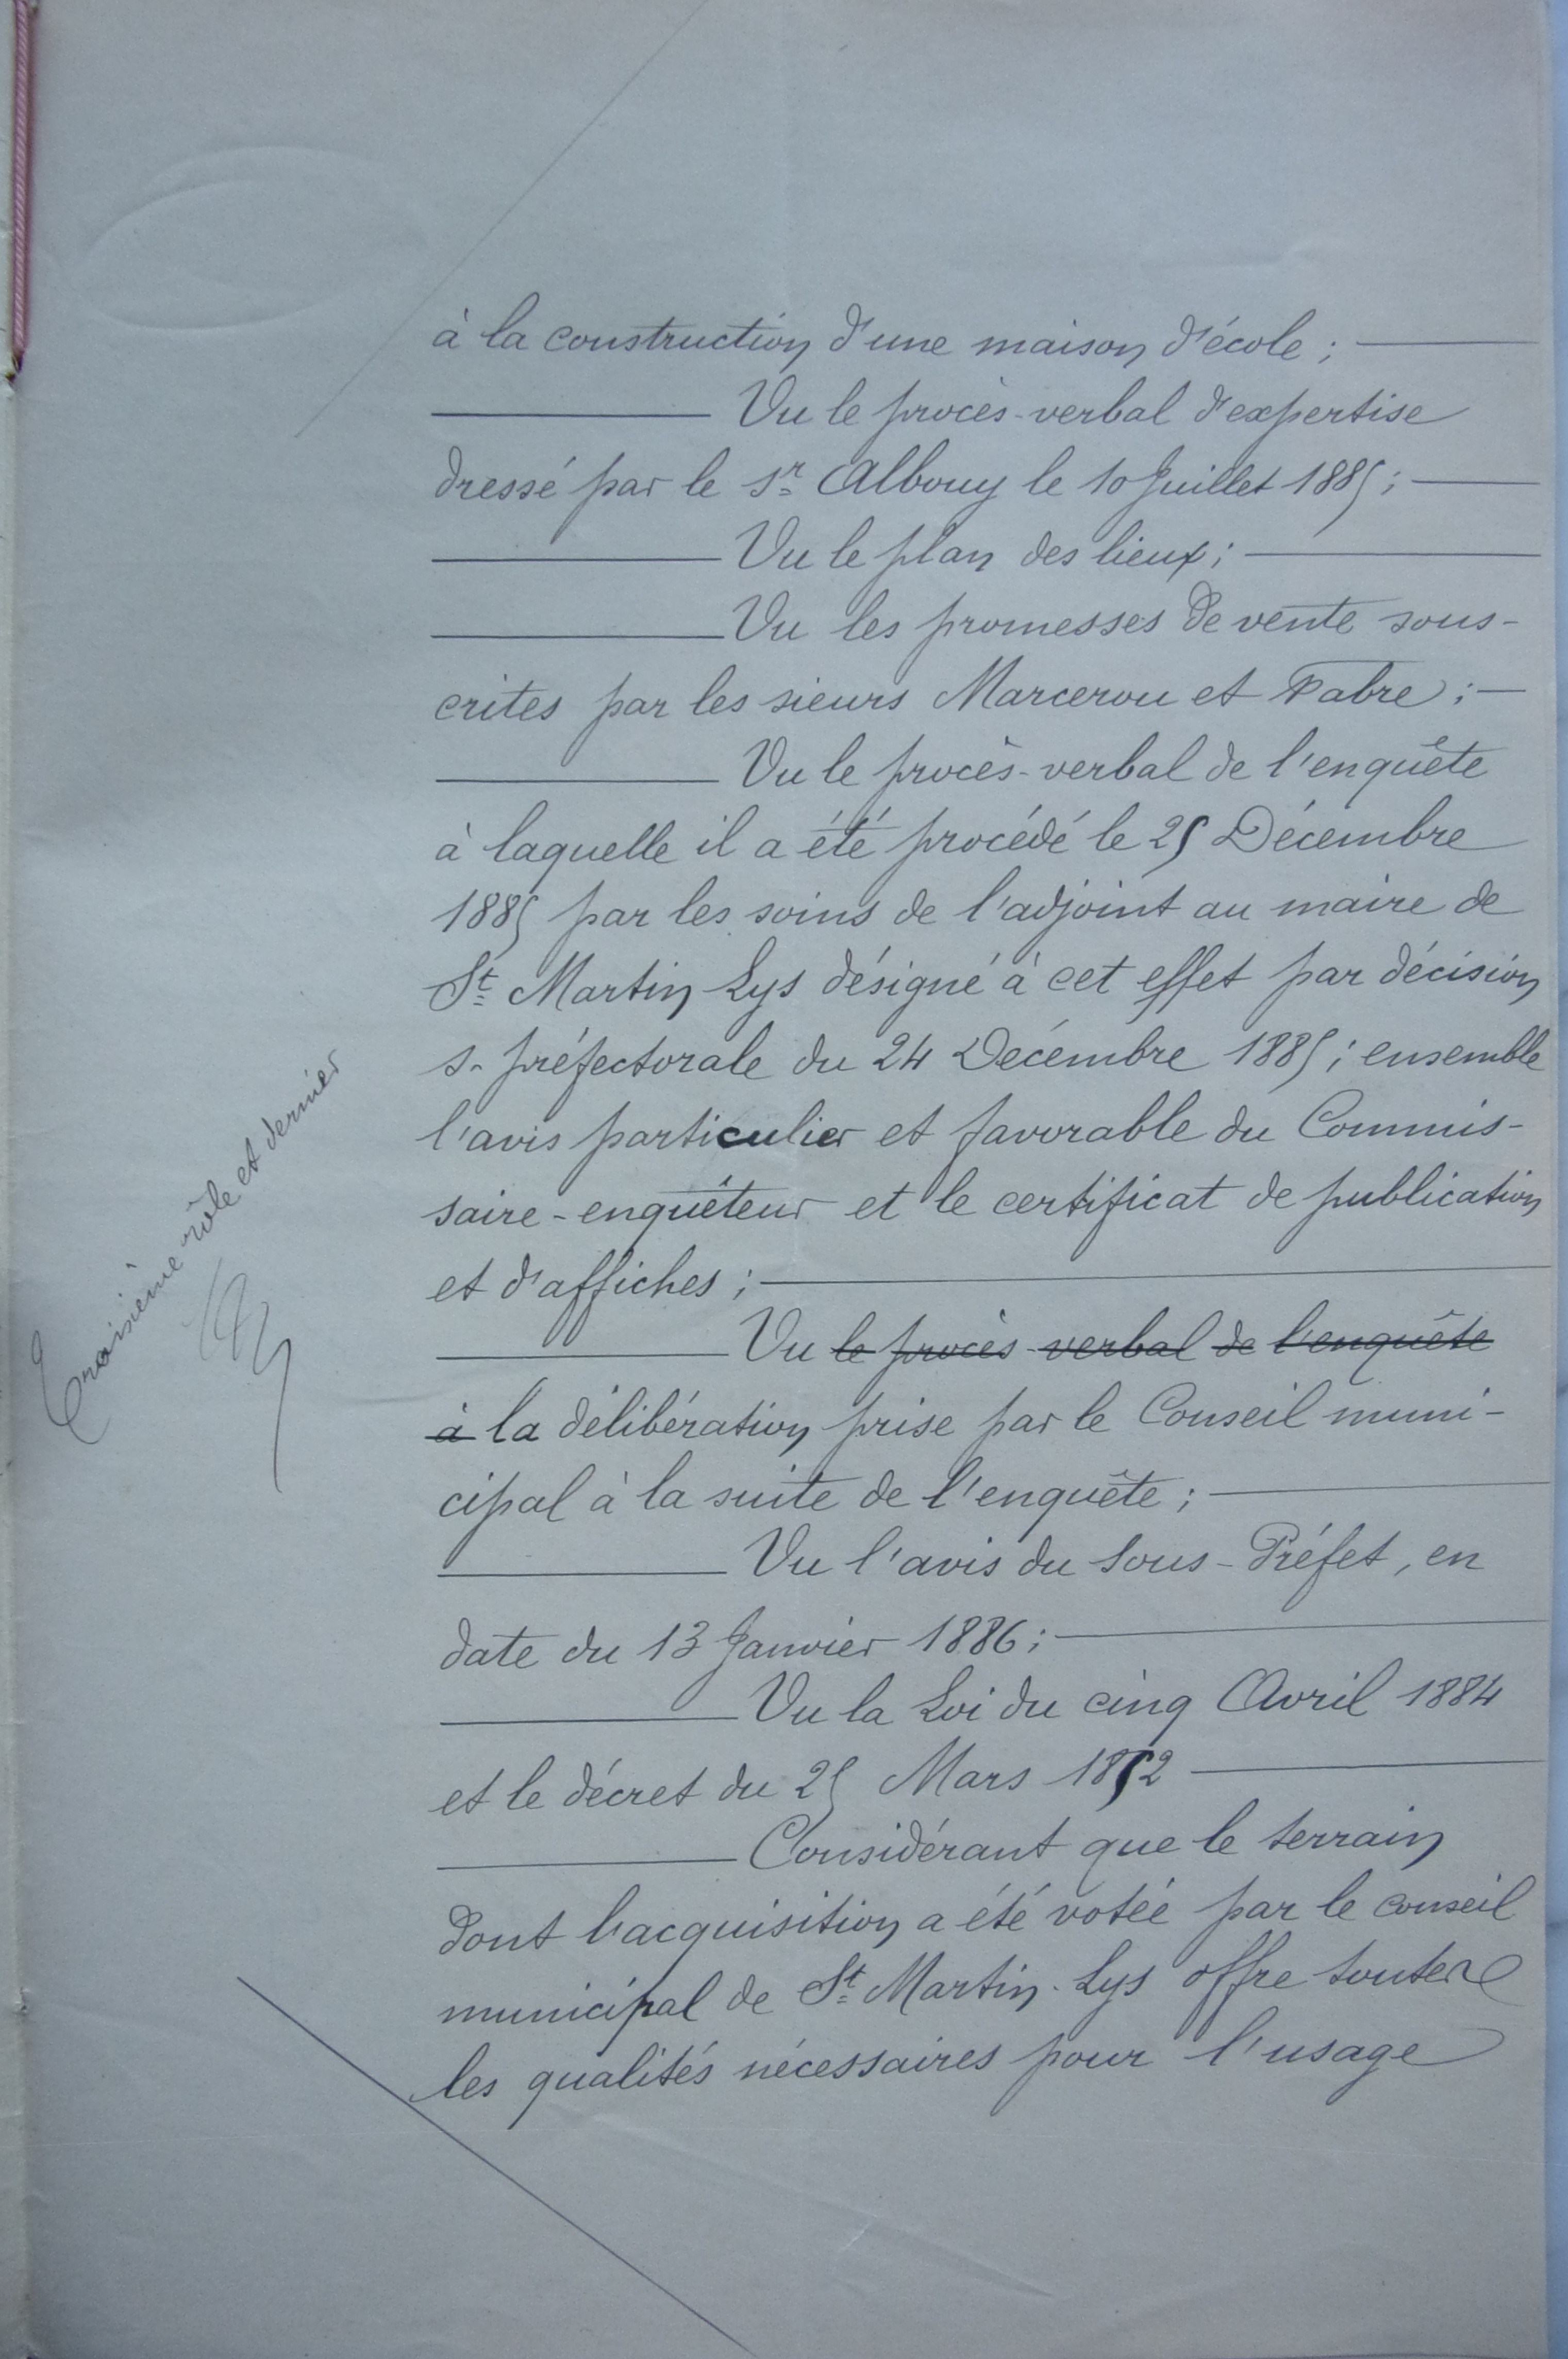 à la construction d'une maison d'école ;
Vu le procès-verbal d'expertise
dressé par le sr Albouy le 10 Juillet 1885 ;
Vu le plan des lieux ;
Vu les promesses de vente sous-
crites par les sieurs Marcerou et Fabre ;
Vu le procès-verbal de l'enquête
à laquelle il a été procédé le 25 Décembre
1885 par les soins de l'adjoint au maire de
St Martin Lys désigné à cet effet par décision
s. préfectorale du 24 Décembre 1885 ; ensemble
l'avis particulier et favorable du Commis-
saire-enquêteur et le certificat de publication
et d'affiches ;
Vu le procès-verbal de l'enquête
à la délibération prise par le Conseil muni-
cipal à la suite de l'enquête ;
Vu l'avis du Sous-Préfet, en
date du 13 Janvier 1886 ;
Vu la Loi du cinq Avril 1884
et le décret du 25 Mars 1852
Considérant que le terrain
dont l'acquisition a été votée par le conseil
municipal de St Martin-Lys offre toutes
les qualités nécessaires pour l'usage
Troisième rôle et dernier